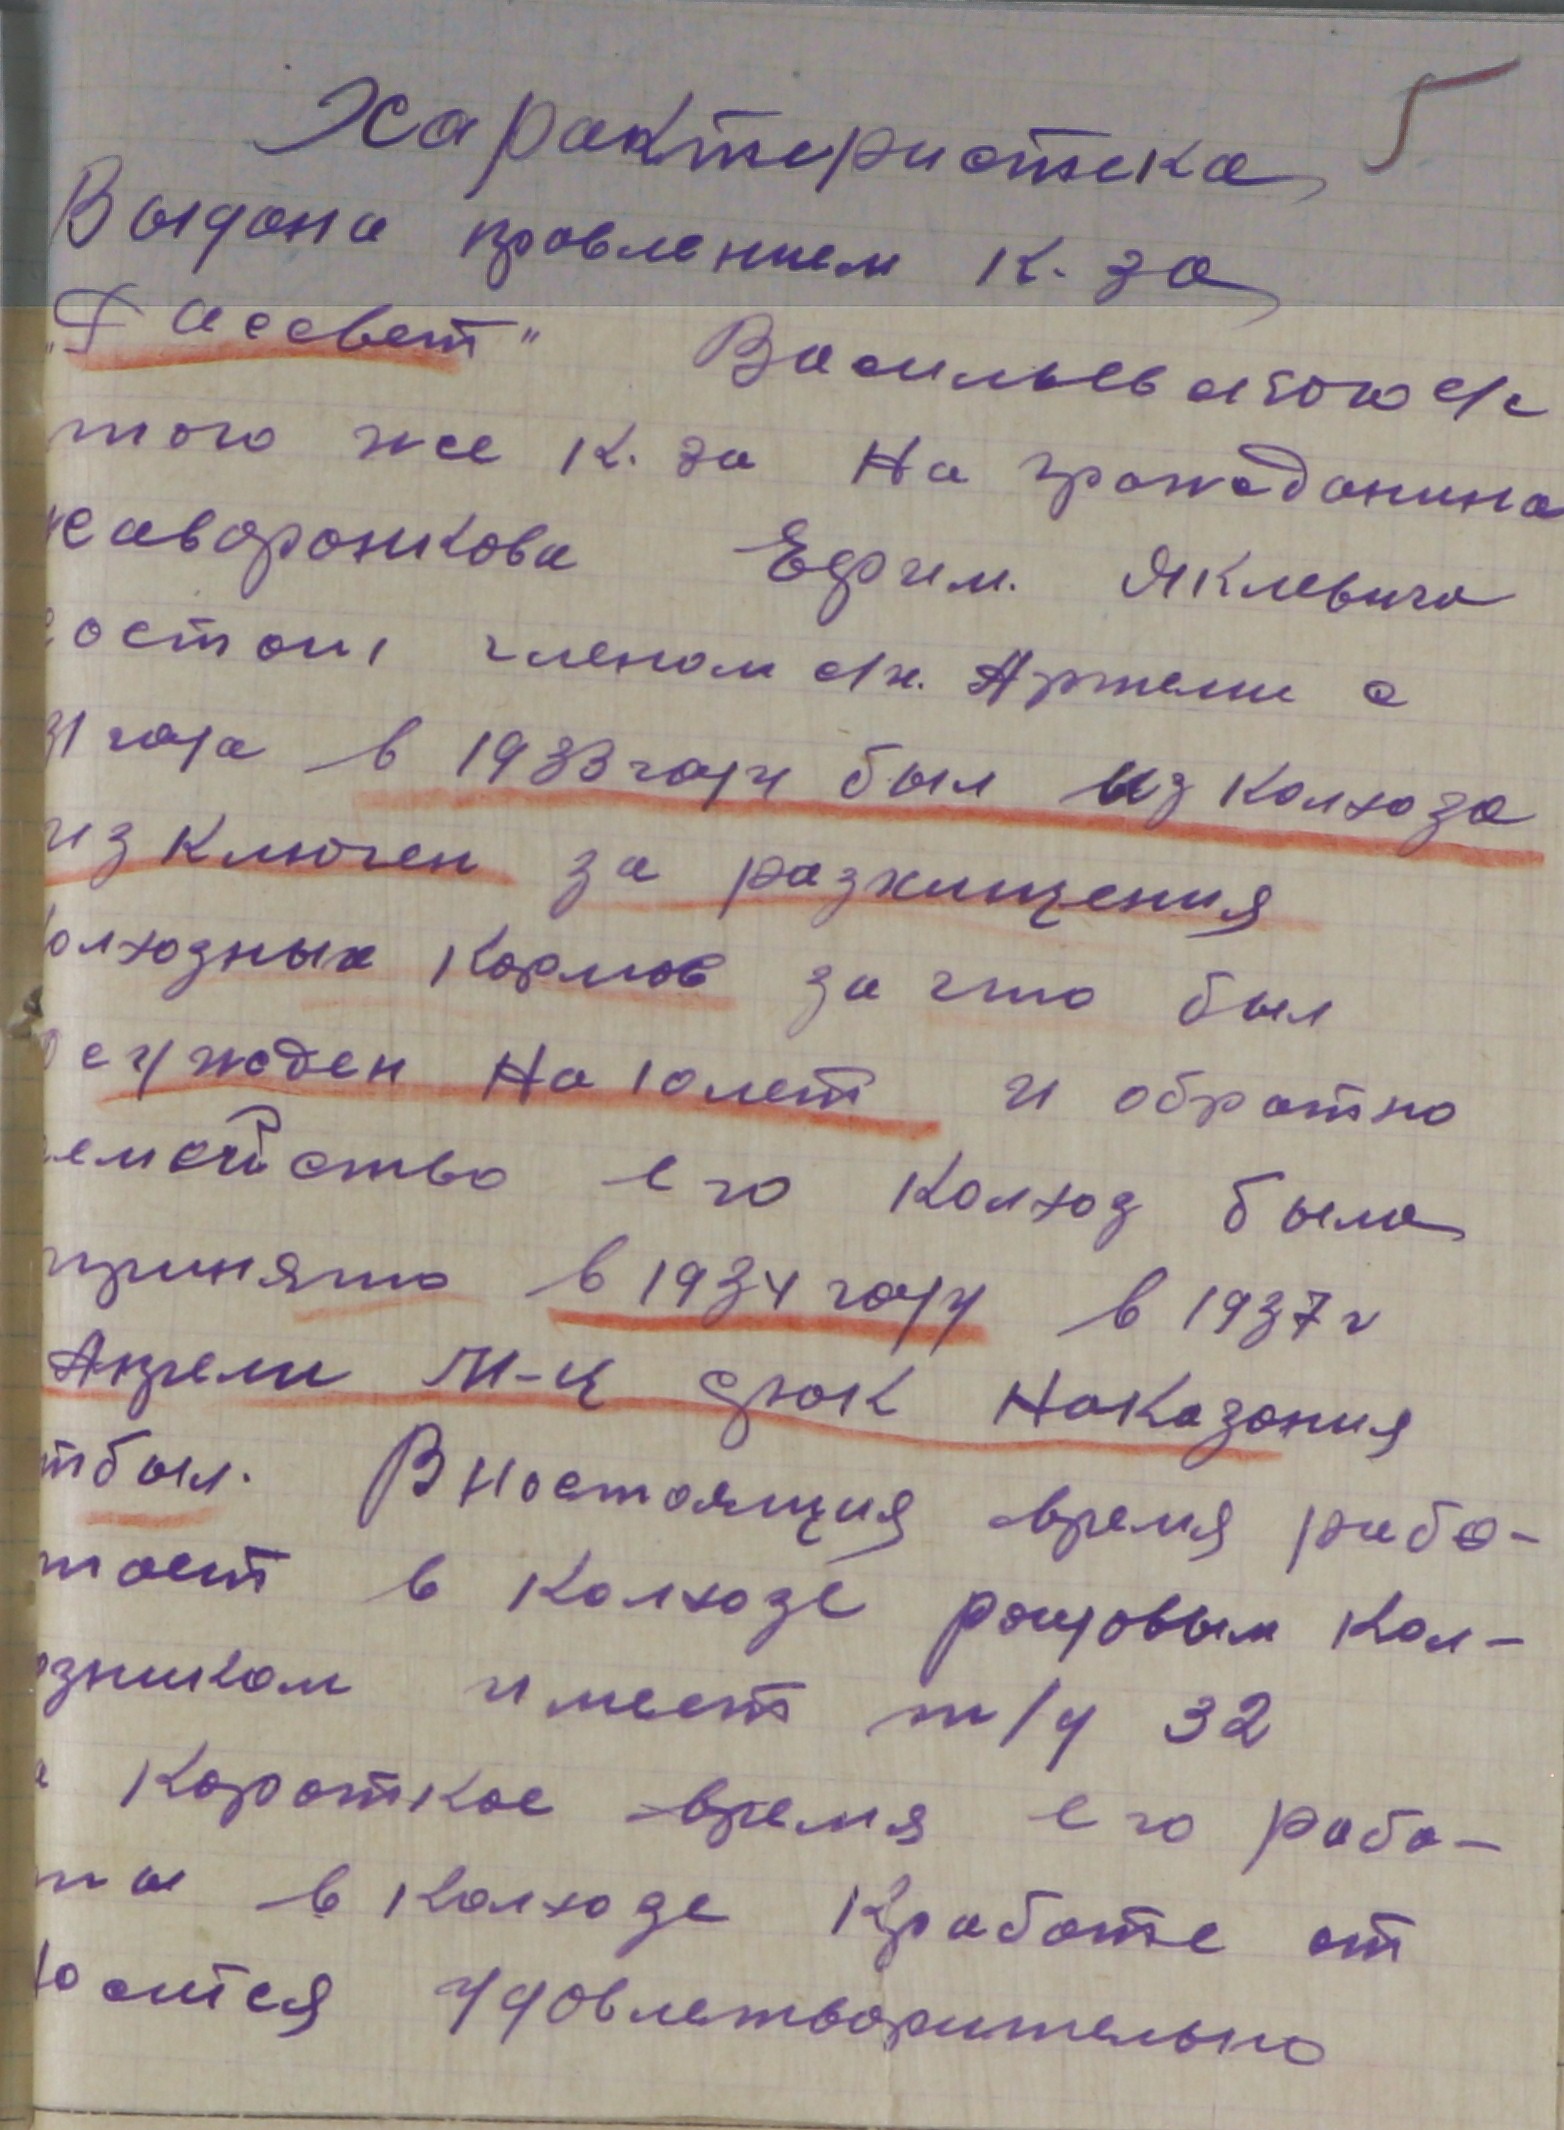 Характеристека 5
Выдана провлением к-за
"Рассвет" Васильевского с/с
того же к-за на гражданина
жаворонкова Ефим. Яклевича
состоит членом с/х. Артели с
31 года в 1933 году был из колхоза
изключен за разхищения
колхозных кормов за что был
осужден на 10 лет и обратно
семейство его колхоз была
принято в 1934 году в 1937 г
Апрели м-ц срок наказания
отбыл. В ностоящия время рабо-
тает в колхозе рядовым кол-
озником имеет т/д 32
короткое время его рабо-
ты в колхозе к работе от
носится удовлетворительно